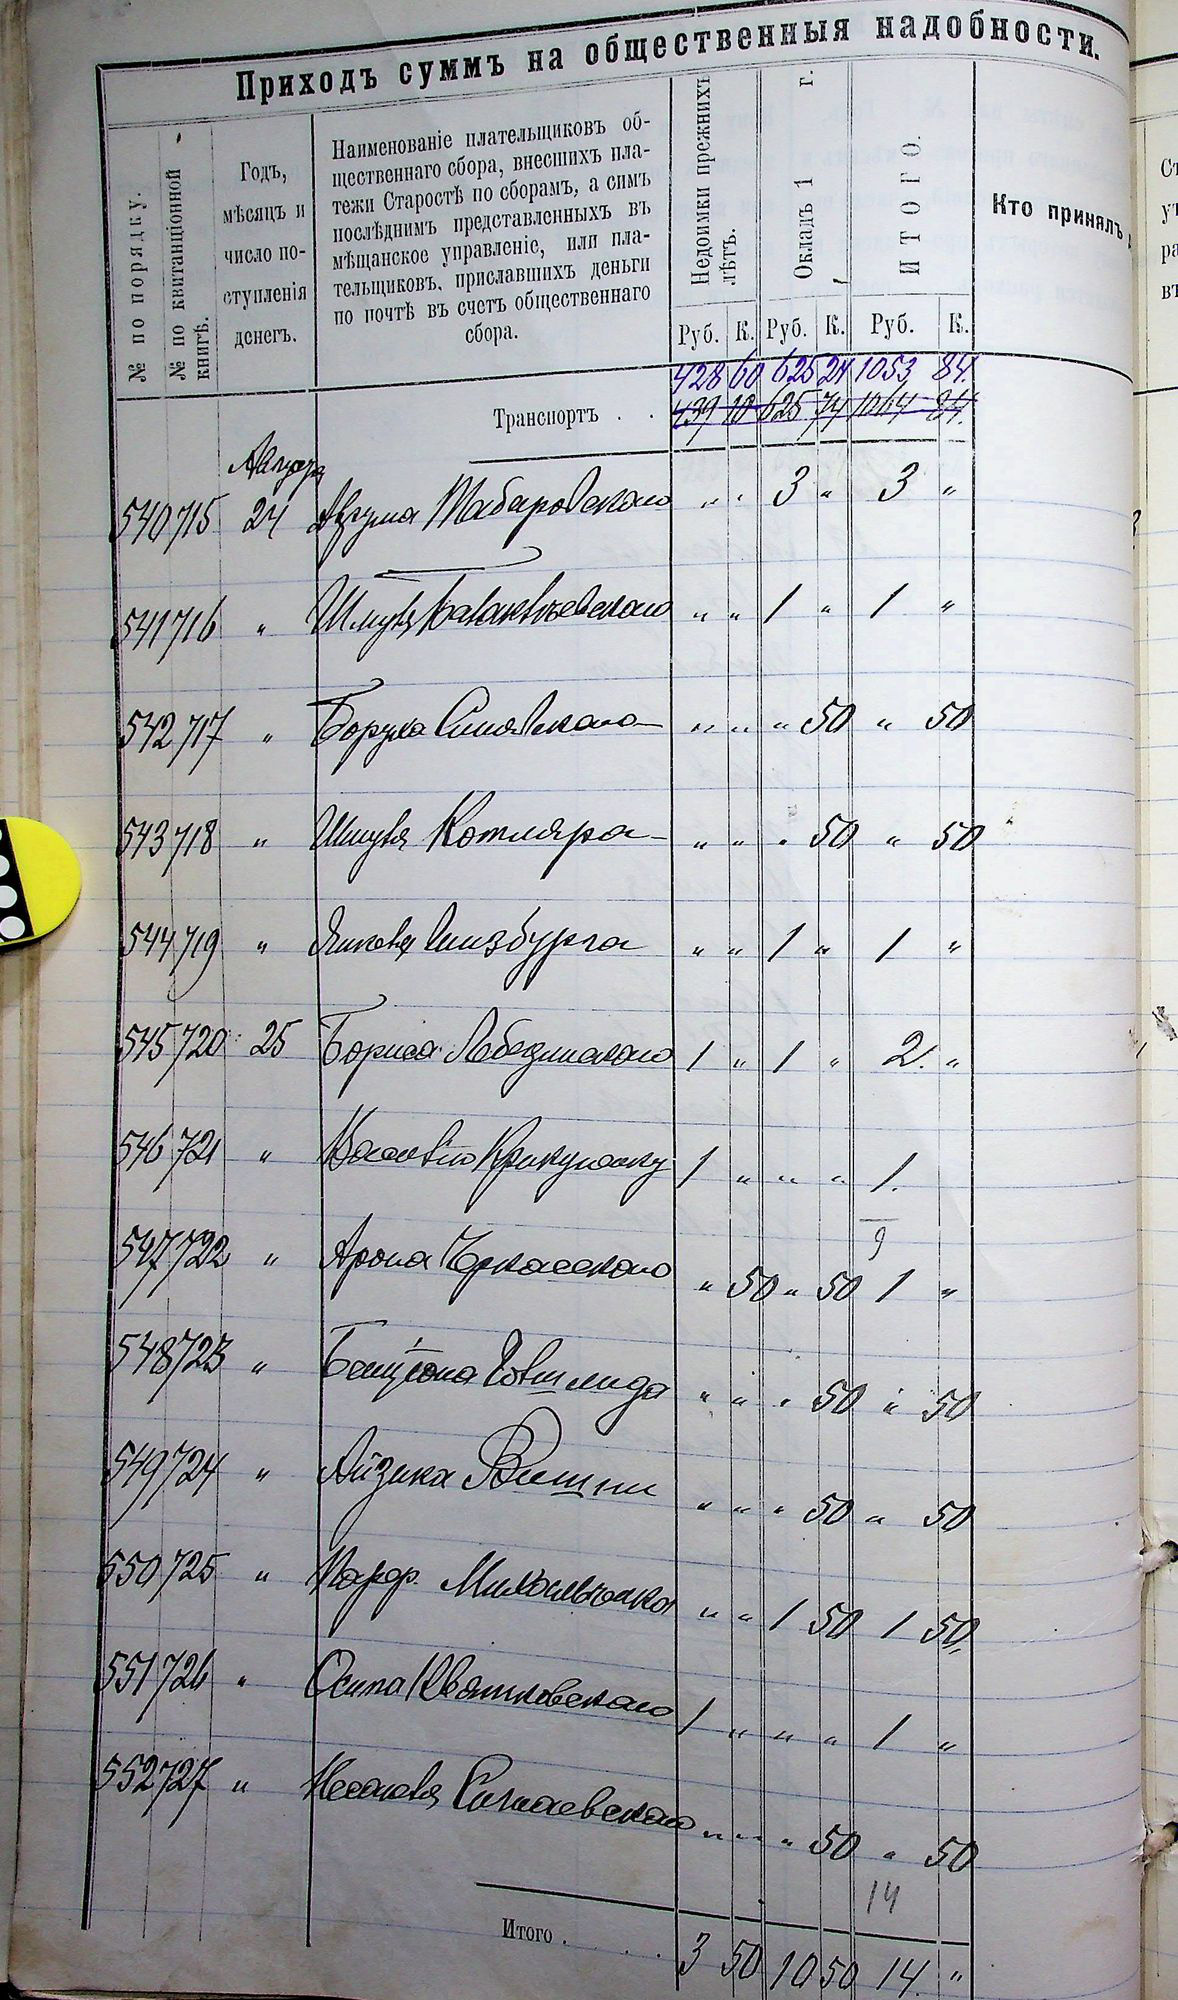 Приходъ суммъ на общественныя надобности.
№ по порядку.
№ по квитанціонной книгѣ.
Годъ,
мѣсяцъ и
число по-
ступленія
денегъ.
Наименованіе плательщиковъ об-
щественнаго сбора, внесшихъ пла-
тежи Старостѣ по сборамъ, а симъ
послѣднимъ представленныхъ въ
мѣщанское управленіе, или пла-
тельщиковъ, приславшихъ деньги
по почтѣ въ счетъ общественнаго
сбора.
Недоимки прежнихъ лѣтъ.
Окладъ 1 г.
ИТОГО.
Кто принялъ
Руб. К. Руб. К. Руб. К.
428 60 625 24 1053 84.
Транспортъ . . 439 10 625 74 1064 84.
540 715 24 Таборовскаго " " 3 " 3 "
541 716 " " " 1 " 1 "
542 717 " Боруха Синявскаго " " " 50 " 50
543 718 " Шмуля Котляра " " " 50 " 50
544 719 " Якова Гинзбурга " " 1 " 1 "
545 720 25 Бориса Лебединскаго 1 " 1 " 2. "
546 721 " 1 " " " 1.
9
547 722 " Арона Черкасскаго " 50 " 50 1 "
548 723 " " " " 50 " 50
549 724 " Айзика " " " 50 " 50
550 725 " " " 1 50 1 50.
551 726 " Осипа Квятковскаго 1 " " " 1 "
552 727 " " " " 50 " 50
14
Итого . . . . 3 50 10 50 14. "